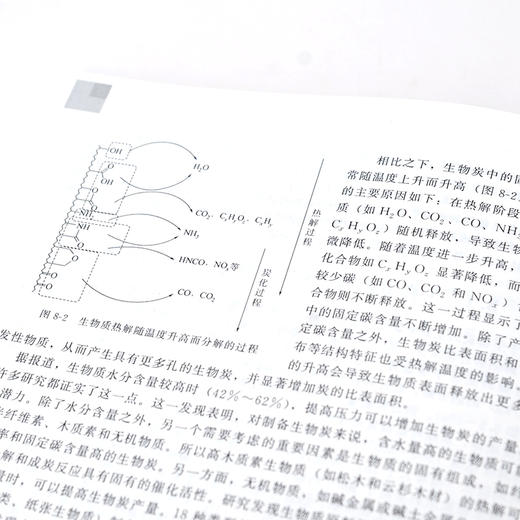 OH
H₂O
O
O
OH
O
CO₂、CₓHᵧO_z、CₓHᵧ
NH
NH₃
NH
O
O
HNCO、NOₓ等
O
O
CO、CO₂
热解过程
炭化过程
图 8-2 生物质热解随温度升高而分解的过程
相比之下，生物炭中的固
常随温度上升而升高（图 8-2
的主要原因如下：在热解阶段
质（如 H₂O、CO₂、CO、NH₃
CₓHᵧO_z）随机释放，导致生物
微降低。随着温度进一步升高，
化合物如 CₓHᵧO_z 显著降低，而
较少碳（如 CO、CO₂ 和 NOₓ）
合物则不断释放。这一过程显示了
中的固定碳含量不断增加。除了产
定碳含量之外，生物炭比表面积和
布等结构特征也受热解温度的影响
的升高会导致生物质表面释放出更多
发性物质，从而产生具有更多孔的生物炭，并显著增加炭的比表面积。
据报道，生物质水分含量较高时（42%～62%），提高压力可以增加生物炭的产量
许多研究都证实了这一点。这一发现表明，对制备生物炭来说，含水量高的生物质可
潜力。除了水分含量之外，另一个需要考虑的重要因素是生物质的固有组成，如纤
纤维素、木质素和无机物质。所以高木质素生物质（如松木和云杉木材）的热解可
率和固定碳含量高的生物炭。另一方面，无机物质，如碱金属或碱土金属
解和成炭反应具有固有的催化活性。研究发现生物质
量时，可以提高生物炭产量。18 种
类、纸张生物质）